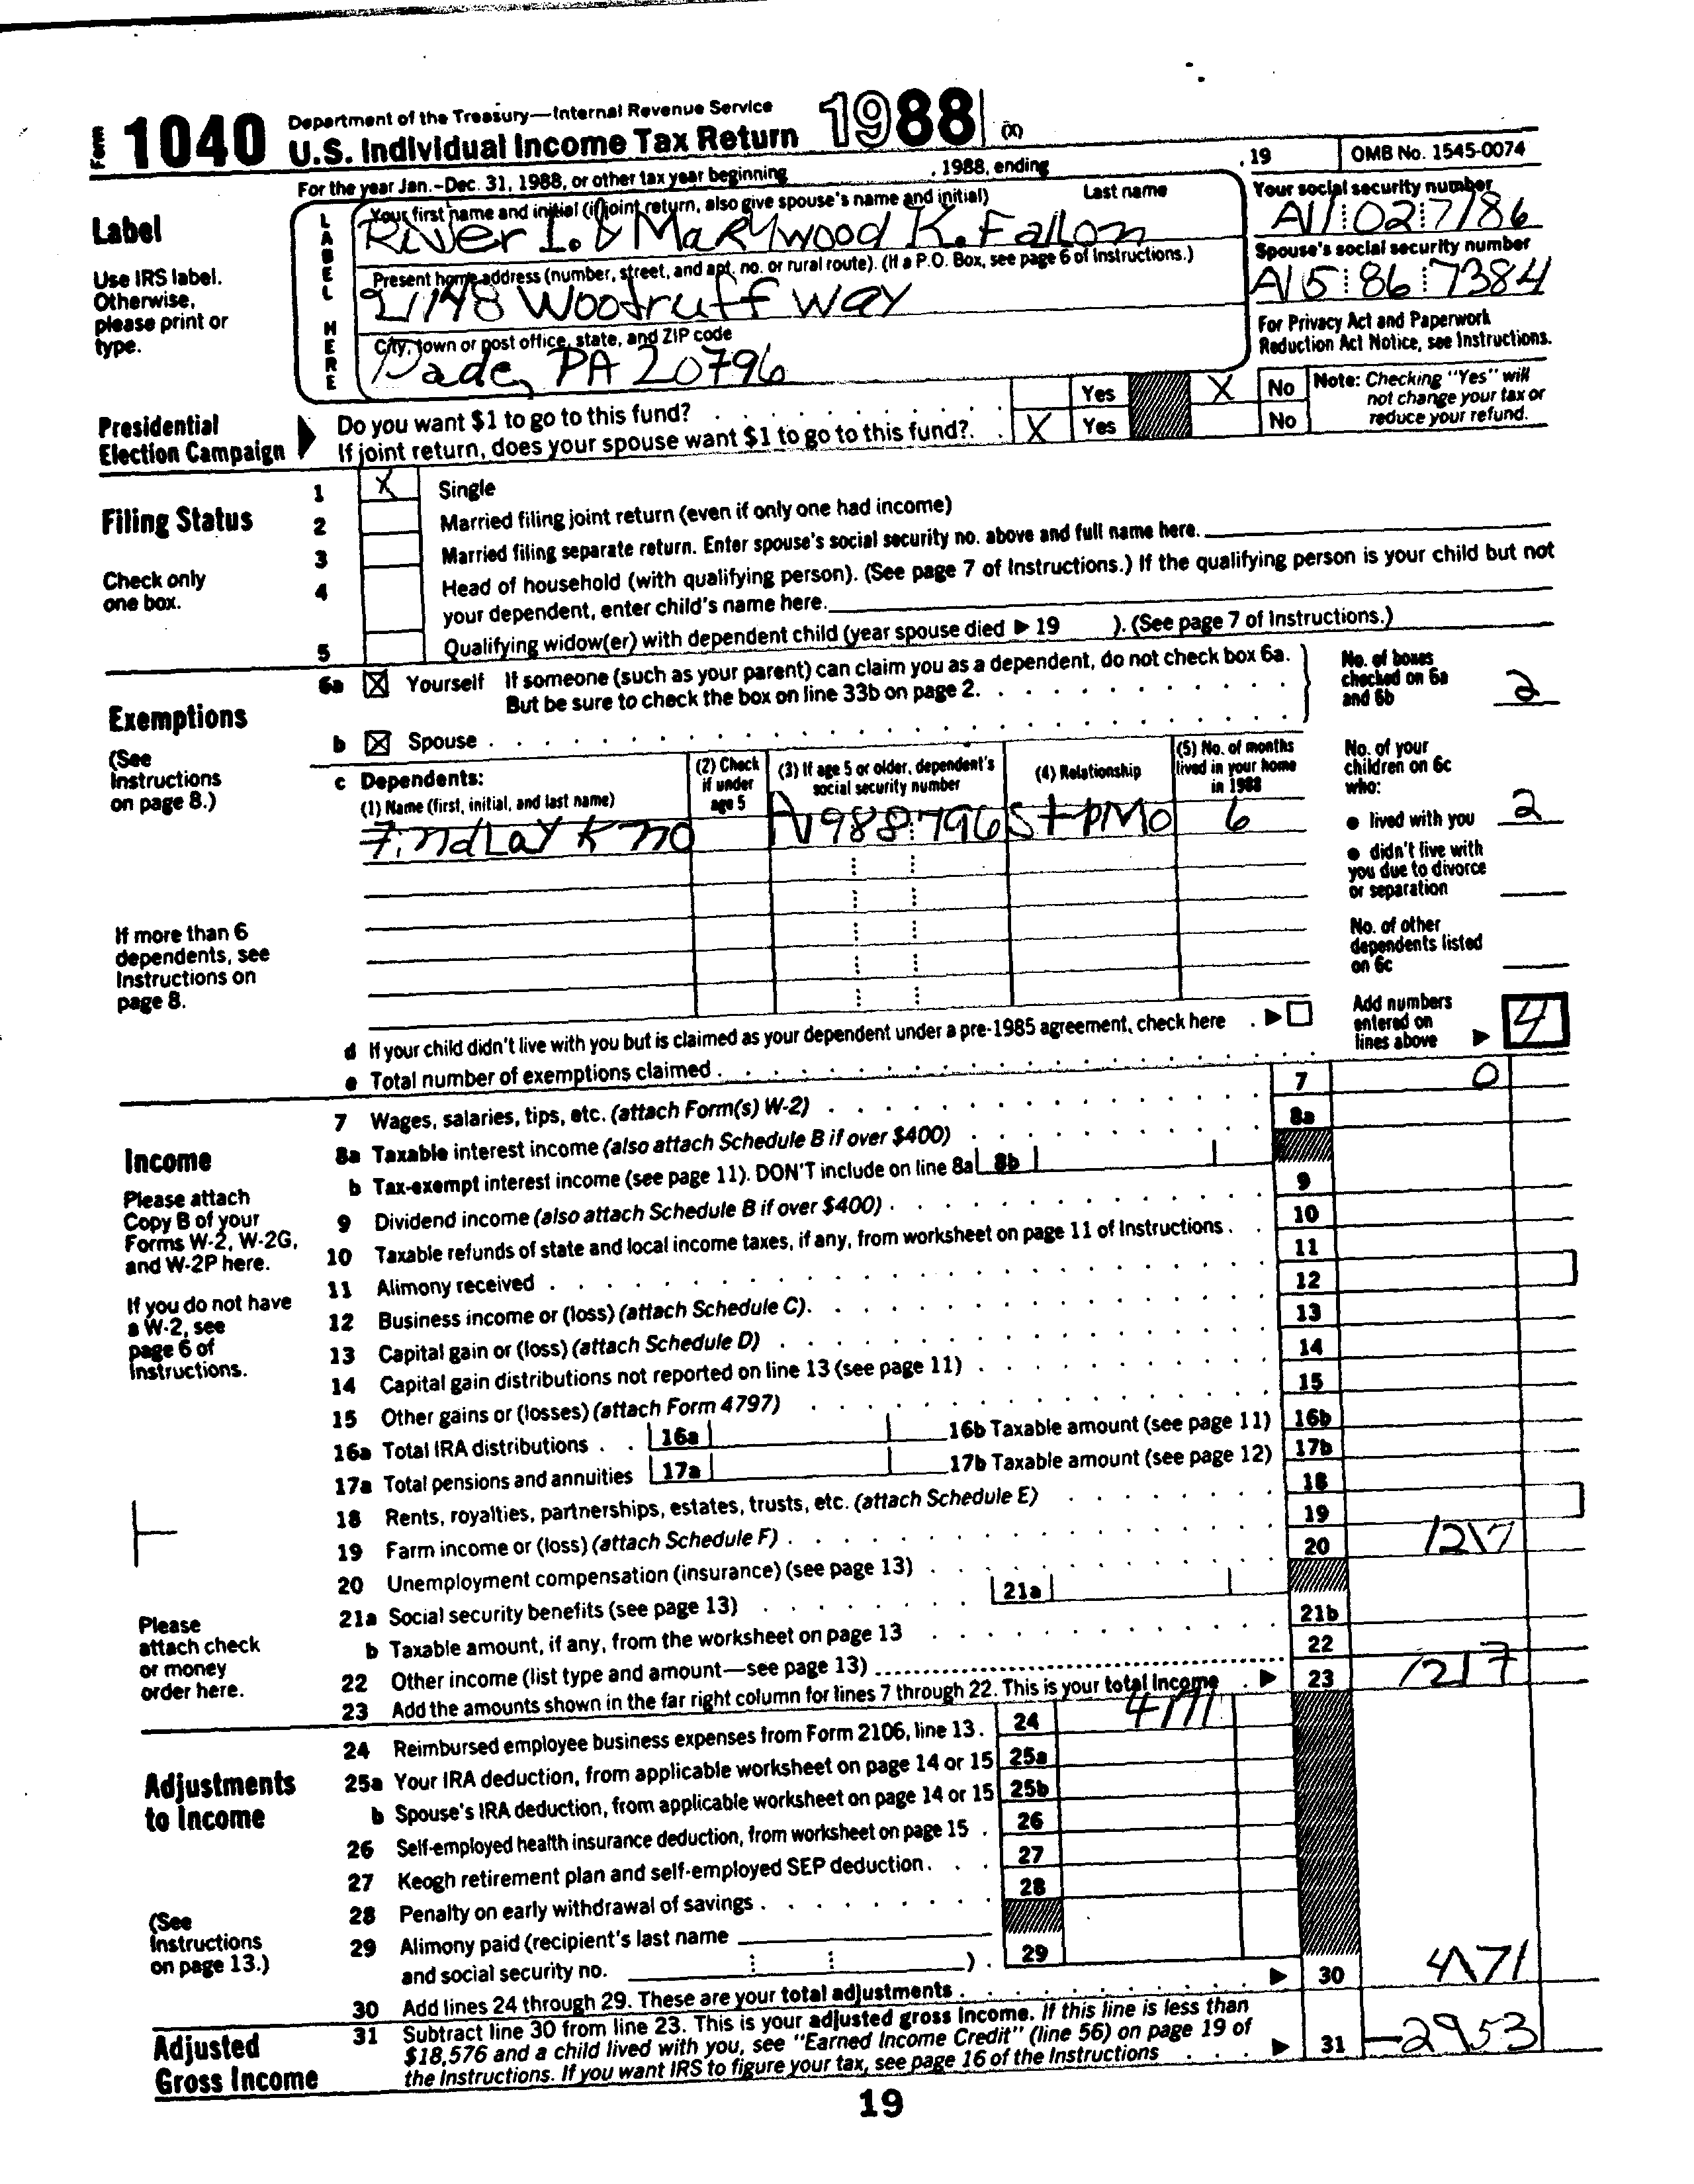 Form 1040 Department of the Treasury—Internal Revenue Service
U.S. Individual Income Tax Return 1988 (X)
For the year Jan.–Dec. 31, 1988, or other tax year beginning , 1988, ending , 19 OMB No. 1545-0074
Label
Use IRS label. Otherwise, please print or type.
LABEL HERE
Your first name and initial (if joint return, also give spouse's name and initial) Last name
River I. & Marywood K. Fallon
Your social security number
A11 02 7186
Present home address (number, street, and apt. no. or rural route). (If a P.O. Box, see page 6 of Instructions.)
21148 Woodruff Way
Spouse's social security number
A15 86 7384
City, town or post office, state, and ZIP code
Dade, PA 20796
For Privacy Act and Paperwork Reduction Act Notice, see Instructions.
Presidential Election Campaign
Do you want $1 to go to this fund? . . . Yes X No
If joint return, does your spouse want $1 to go to this fund? . . X Yes No
Note: Checking "Yes" will not change your tax or reduce your refund.
Filing Status
Check only one box.
1 X Single
2 Married filing joint return (even if only one had income)
3 Married filing separate return. Enter spouse's social security no. above and full name here.
4 Head of household (with qualifying person). (See page 7 of Instructions.) If the qualifying person is your child but not
your dependent, enter child's name here.
5 Qualifying widow(er) with dependent child (year spouse died ▶ 19 ). (See page 7 of Instructions.)
Exemptions
(See Instructions on page 8.)
6a X Yourself If someone (such as your parent) can claim you as a dependent, do not check box 6a.
But be sure to check the box on line 33b on page 2.
b X Spouse
No. of boxes checked on 6a and 6b 2
c Dependents:
(1) Name (first, initial, and last name)
(2) Check if under age 5
(3) If age 5 or older, dependent's social security number
(4) Relationship
(5) No. of months lived in your home in 1988
Findlay K no A 988 796 StpMo 6
No. of your children on 6c who:
● lived with you 2
● didn't live with you due to divorce or separation
No. of other dependents listed on 6c
If more than 6 dependents, see Instructions on page 8.
d If your child didn't live with you but is claimed as your dependent under a pre-1985 agreement, check here . ▶
e Total number of exemptions claimed
Add numbers entered on lines above ▶ 4
Income
Please attach Copy B of your Forms W-2, W-2G, and W-2P here.
If you do not have a W-2, see page 6 of Instructions.
Please attach check or money order here.
7 Wages, salaries, tips, etc. (attach Form(s) W-2) 7 0
8a Taxable interest income (also attach Schedule B if over $400) 8a
b Tax-exempt interest income (see page 11). DON'T include on line 8a 8b
9 Dividend income (also attach Schedule B if over $400) 9
10 Taxable refunds of state and local income taxes, if any, from worksheet on page 11 of Instructions 10
11 Alimony received 11
12 Business income or (loss) (attach Schedule C) 12
13 Capital gain or (loss) (attach Schedule D) 13
14 Capital gain distributions not reported on line 13 (see page 11) 14
15 Other gains or (losses) (attach Form 4797) 15
16a Total IRA distributions 16a 16b Taxable amount (see page 11) 16b
17a Total pensions and annuities 17a 17b Taxable amount (see page 12) 17b
18 Rents, royalties, partnerships, estates, trusts, etc. (attach Schedule E) 18
19 Farm income or (loss) (attach Schedule F) 19
20 Unemployment compensation (insurance) (see page 13) 20 1217
21a Social security benefits (see page 13) 21a
b Taxable amount, if any, from the worksheet on page 13 21b
22 Other income (list type and amount—see page 13) 22
23 Add the amounts shown in the far right column for lines 7 through 22. This is your total income ▶ 23 1217
Adjustments to Income
(See Instructions on page 13.)
24 Reimbursed employee business expenses from Form 2106, line 13. 24 4171
25a Your IRA deduction, from applicable worksheet on page 14 or 15 25a
b Spouse's IRA deduction, from applicable worksheet on page 14 or 15 25b
26 Self-employed health insurance deduction, from worksheet on page 15 26
27 Keogh retirement plan and self-employed SEP deduction 27
28 Penalty on early withdrawal of savings 28
29 Alimony paid (recipient's last name
and social security no. ) . 29
30 Add lines 24 through 29. These are your total adjustments ▶ 30 4171
Adjusted Gross Income
31 Subtract line 30 from line 23. This is your adjusted gross income. If this line is less than
$18,576 and a child lived with you, see "Earned Income Credit" (line 56) on page 19 of
the Instructions. If you want IRS to figure your tax, see page 16 of the Instructions ▶ 31 -2953
19